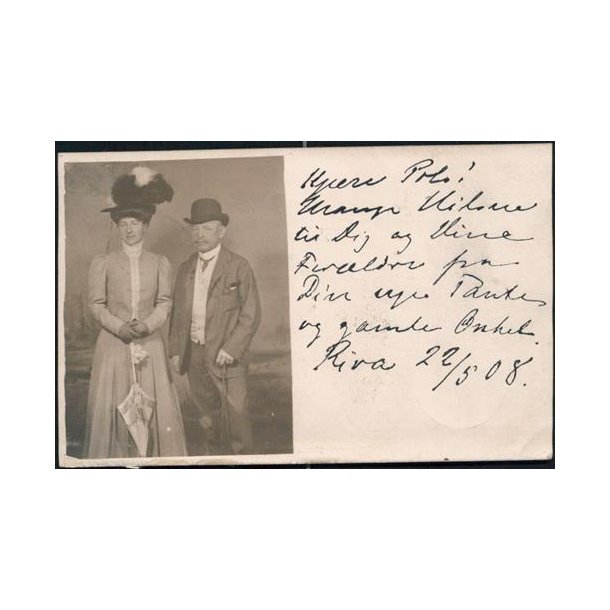 Kjære Pols!
Mange Hilsne
til Dig og Dine
Forældre fra
Din nye Tante
og gamle Onkel.
Riva 22/5 08.